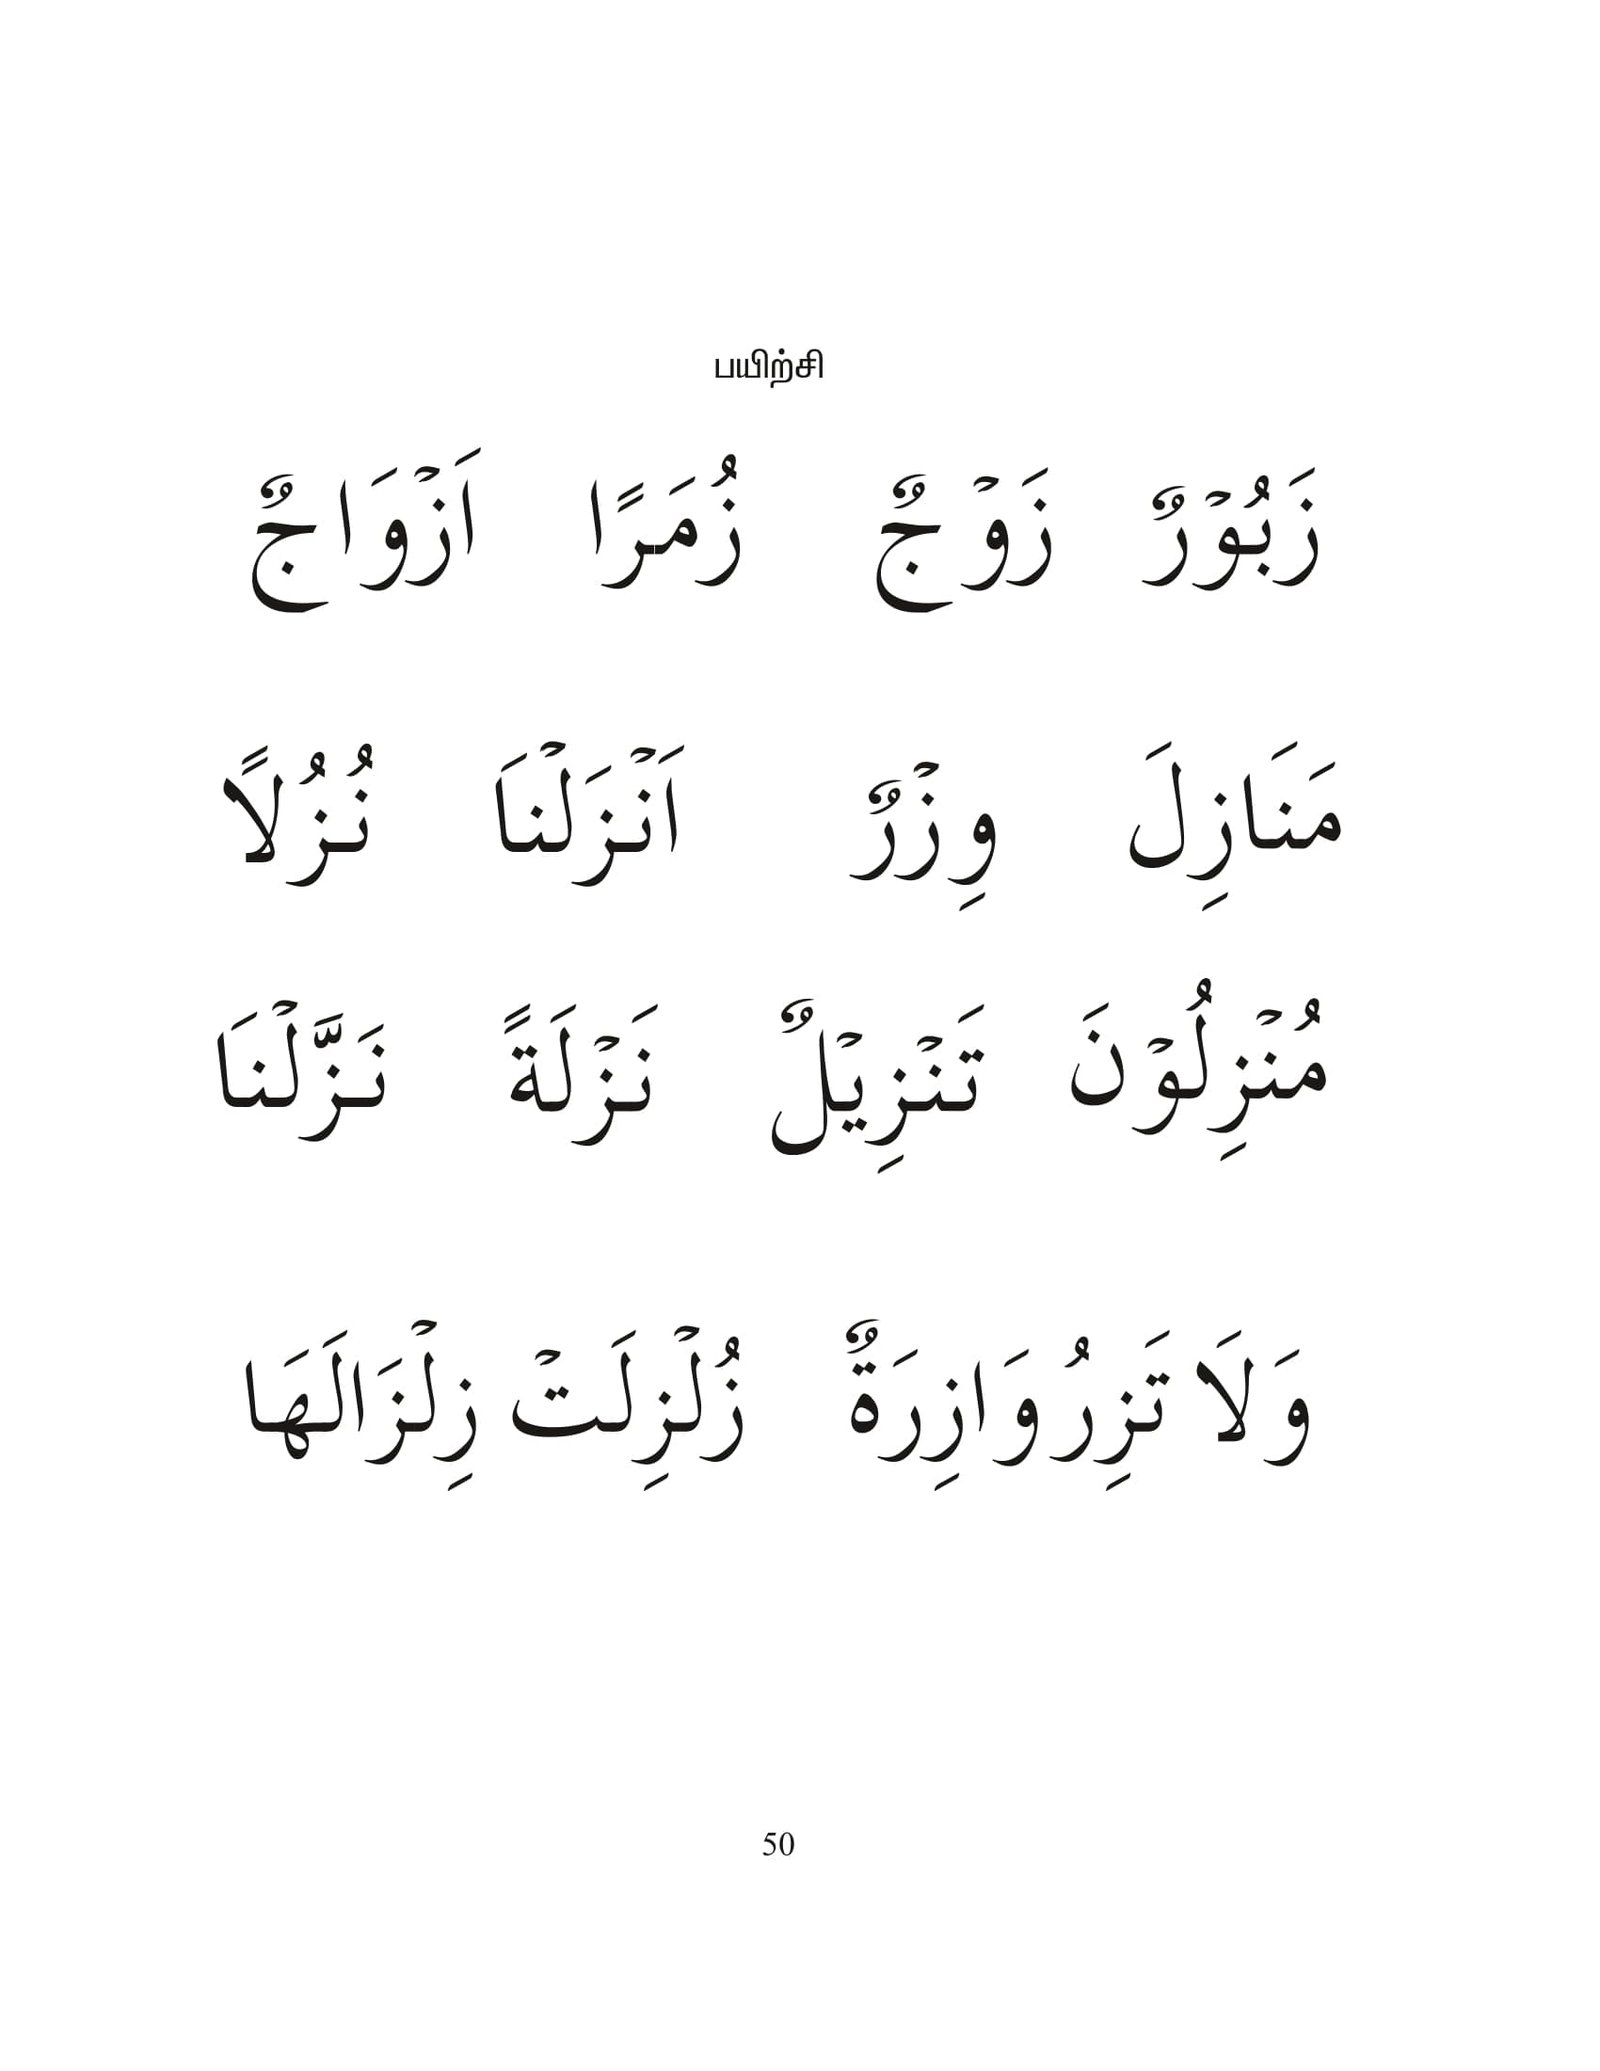 பயிற்சி
زَبُوْرٌ زَوْجٌ زُمَرًا اَزْوَاجٌ
مَنَازِلَ وِزْرٌ اَنْزَلْنَا نُزُلًا
مُنْزِلُوْنَ تَنْزِيْلٌ نَزْلَةً نَزَّلْنَا
وَلَا تَزِرُ وَازِرَةٌ زُلْزِلَتْ زِلْزَالَهَا
50